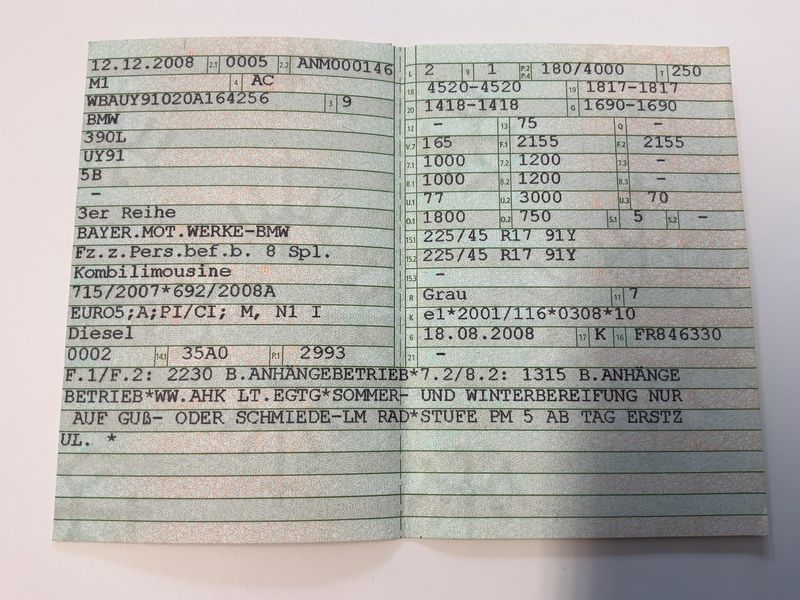 12.12.2008 2.1 0005 2.2 ANM000146
M1 4 AC
WBAUY91020A164256 3 9
BMW
390L
UY91
5B
–
3er Reihe
BAYER.MOT.WERKE-BMW
Fz.z.Pers.bef.b. 8 Spl.
Kombilimousine
715/2007*692/2008A
EURO5;A;PI/CI; M, N1 I
Diesel
0002 14.1 35A0 P.1 2993
L 2 9 1 P.2 P.4 180/4000 T 250
18 4520-4520 19 1817-1817
20 1418-1418 G 1690-1690
12 – 13 75 Q –
V.7 165 F.1 2155 F.2 2155
7.1 1000 7.2 1200 7.3 –
8.1 1000 8.2 1200 8.3 –
U.1 77 U.2 3000 U.3 70
O.1 1800 O.2 750 S.1 5 S.2 –
15.1 225/45 R17 91Y
15.2 225/45 R17 91Y
15.3 –
R Grau 11 7
K e1*2001/116*0308*10
6 18.08.2008 17 K 16 FR846330
21 –
F.1/F.2: 2230 B.ANHÄNGEBETRIEB*7.2/8.2: 1315 B.ANHÄNGE
BETRIEB*WW.AHK LT.EGTG*SOMMER- UND WINTERBEREIFUNG NUR
AUF GUß- ODER SCHMIEDE-LM RAD*STUFE PM 5 AB TAG ERSTZ
UL. *